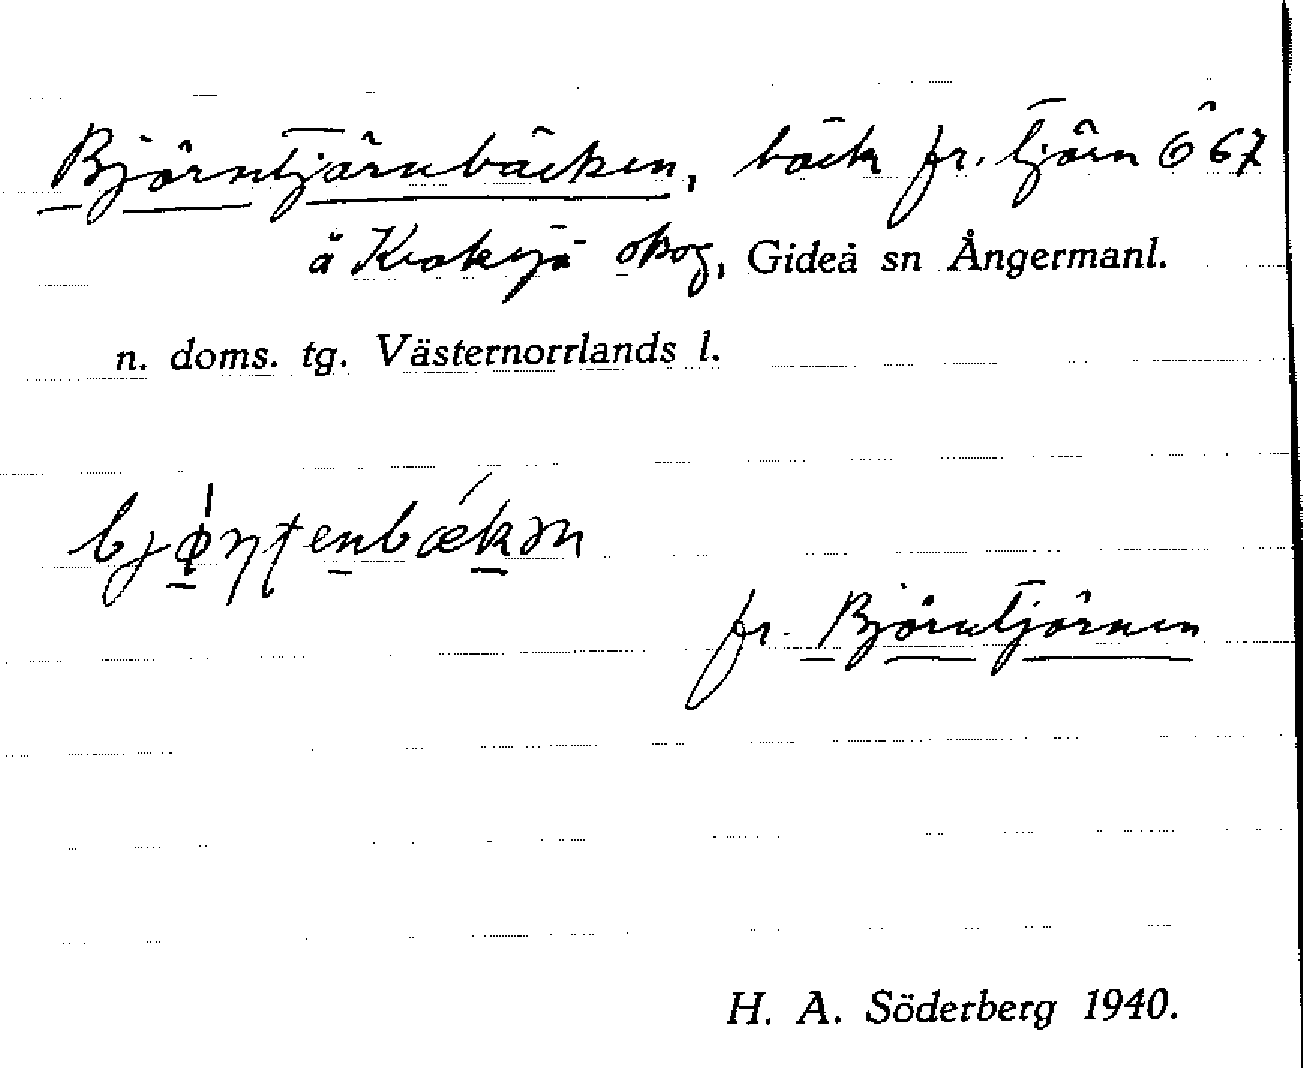 Björntjärnbäcken, bäck fr. tjärn Ö 67
å Kroksjö skog, Gideå sn Ångermanl.
n. doms. tg. Västernorrlands l.
fr. Björntjärnen
H. A. Söderberg 1940.